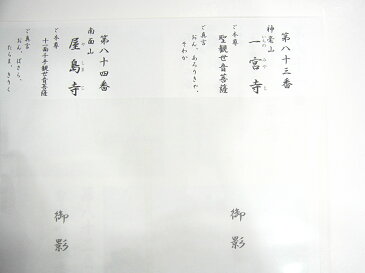 第八十三番
神毫山
一宮寺
いちのみやじ
ご本尊
聖観世音菩薩
ご真言
おん、あろりきゃ、
そわか
御影
第八十四番
南面山
屋島寺
やしまじ
ご本尊
十一面千手観世音菩薩
ご真言
おん、ばさら、
たらま、きりく
御影